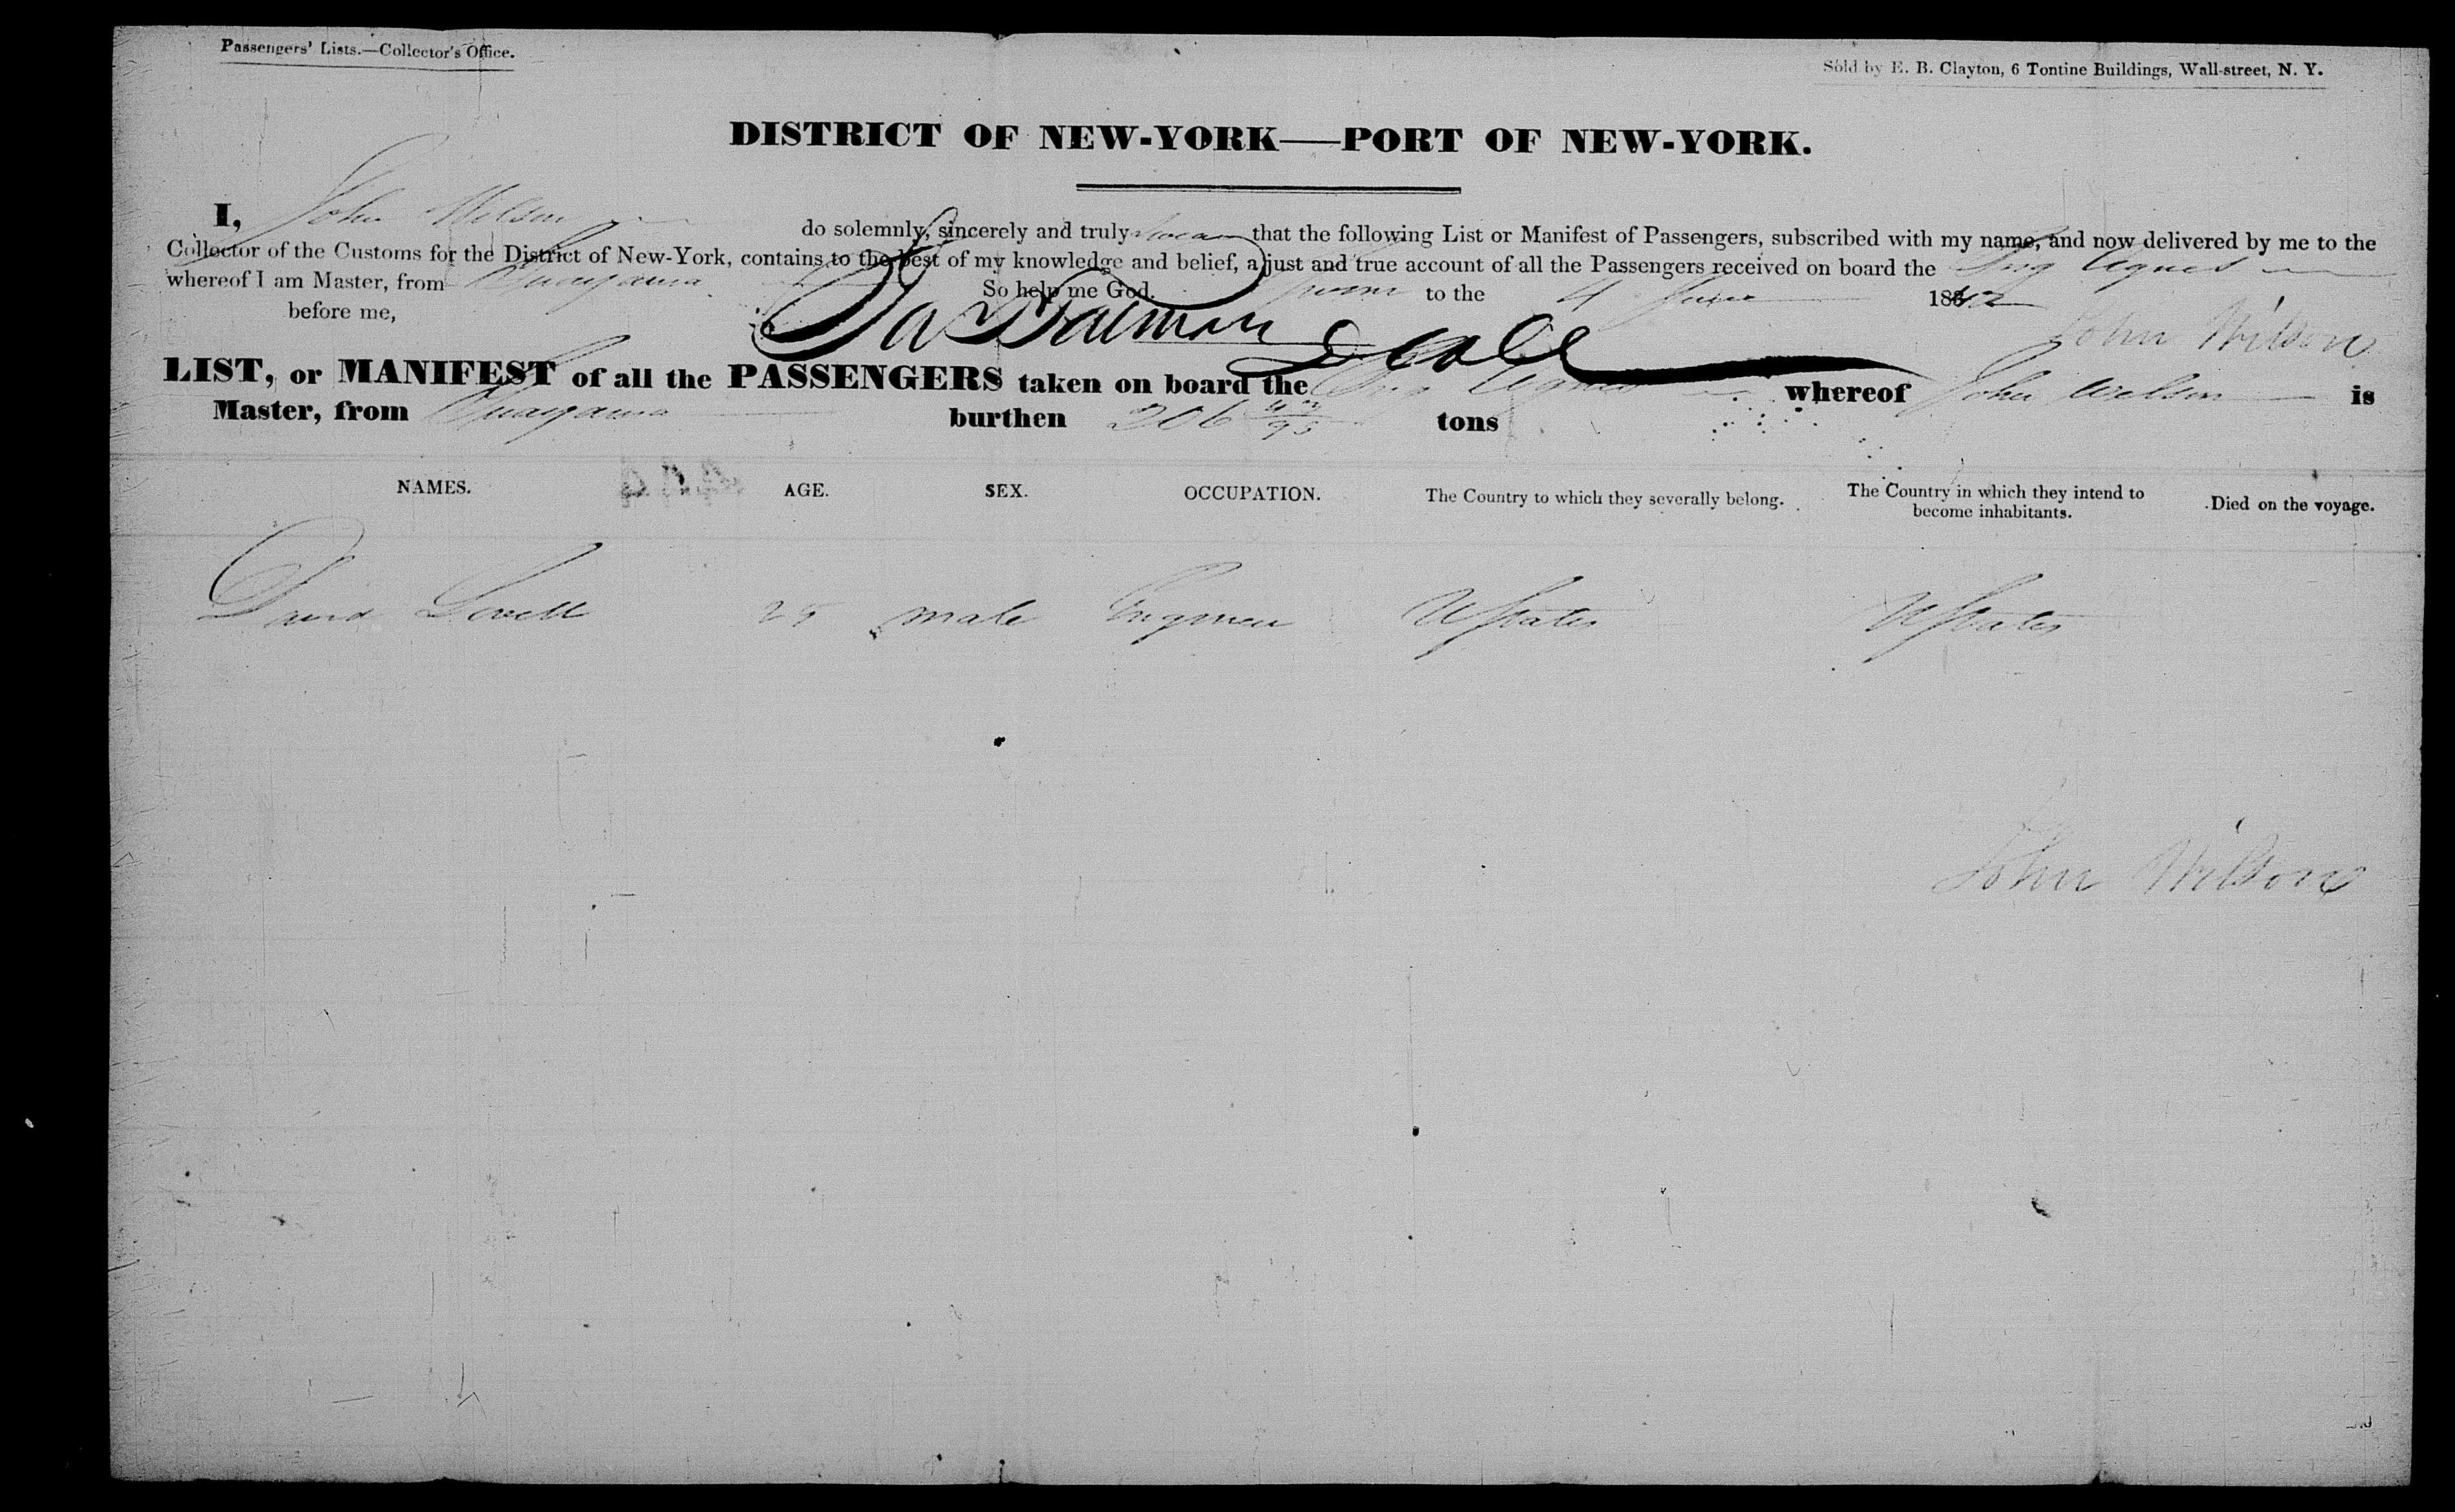 Passengers' Lists.—Collector's Office.
Sold by E. B. Clayton, 6 Tontine Buildings, Wall-street, N. Y.
DISTRICT OF NEW-YORK—PORT OF NEW-YORK.
I, John Wilson do solemnly, sincerely and truly swear that the following List or Manifest of Passengers, subscribed with my name, and now delivered by me to the
Collector of the Customs for the District of New-York, contains to the best of my knowledge and belief, a just and true account of all the Passengers received on board the Brig Agnes
whereof I am Master, from Guayama So help me God. to the 4 June 1842
before me, John Wilson
LIST, or MANIFEST of all the PASSENGERS taken on board the Brig Agnes whereof John Wilson is
Master, from Guayama burthen 206 tons
NAMES. AGE. SEX. OCCUPATION. The Country to which they severally belong. The Country in which they intend to become inhabitants. Died on the voyage.
David Lovell 25 male U States U States
John Wilson